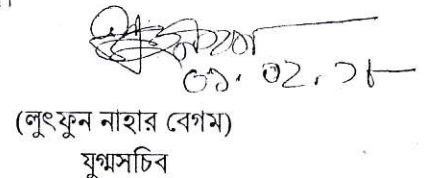 ০১. ০২. ১৮
(লুৎফুন নাহার বেগম)
যুগ্মসচিব